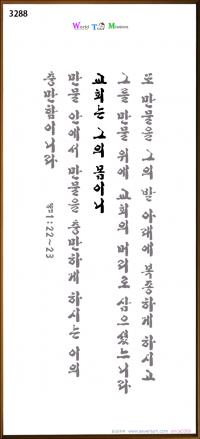 3288
World Tea Mission
또 만물을 그의 발 아래에 복종하게 하시고
그를 만물 위에 교회의 머리로 삼으셨느니라
교회는 그의 몸이니
만물 안에서 만물을 충만하게 하시는 이의
충만함이니라
엡 1:22~23